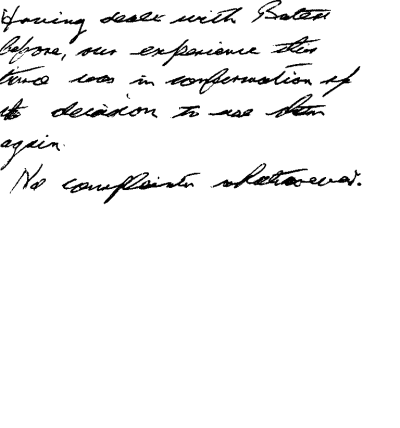 Having dealt with
before, our experience this
time was in confirmation of
decision to use them
again.
No complaints whatsoever.